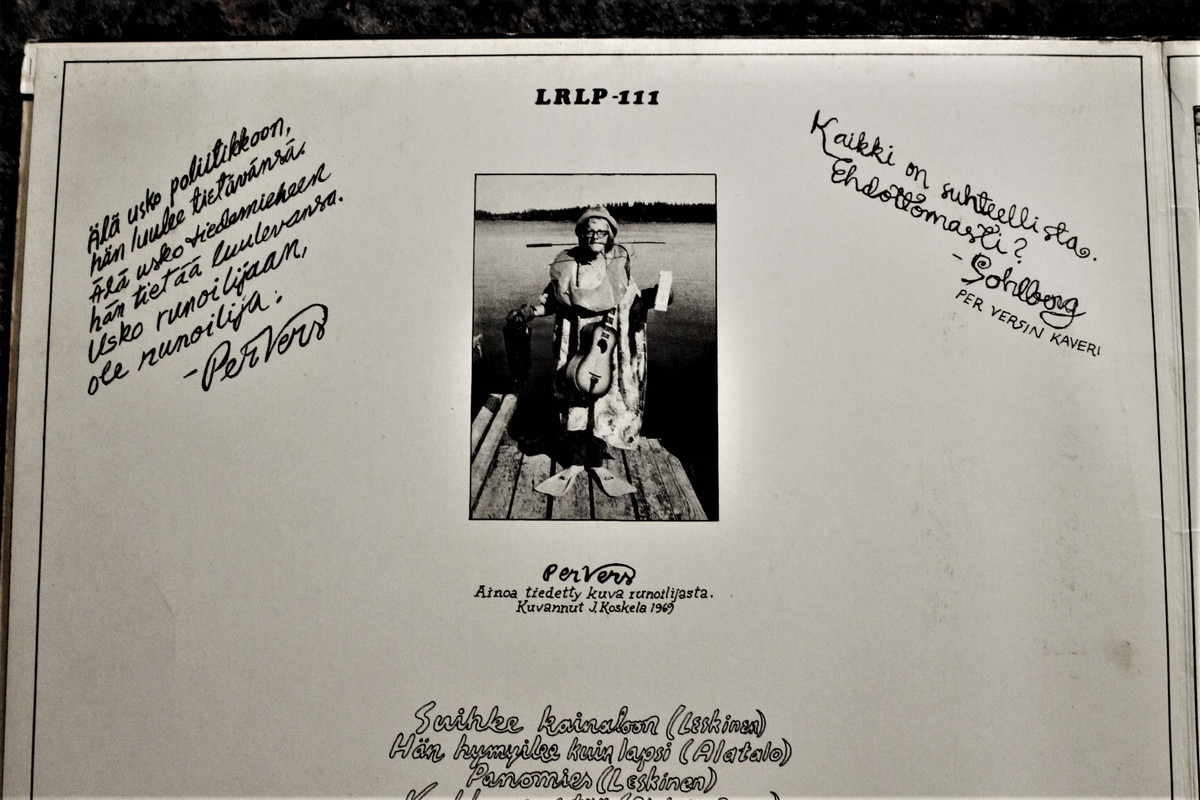 LRLP-111
Älä usko poliitikkoon,
hän luulee tietävänsä.
Älä usko tiedemieheen
hän tietää luulevansa.
Usko runoilijaan,
ole runoilija:
-PerVers
Kaikki on suhteellista.
Ehdottomasti?
-Sohlborg
PER VERSIN KAVERI
PerVers
Ainoa tiedetty kuva runoilijasta.
Kuvannut J. Koskela 1969
Suihke kainaloon (Leskinen)
Hän hymyilee kuin lapsi (Alatalo)
Panomies (Leskinen)